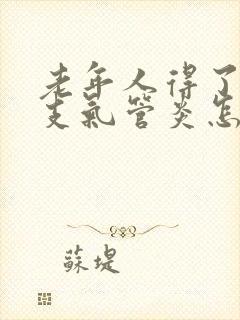 老年人得了
支氣管炎怎
蘇堤